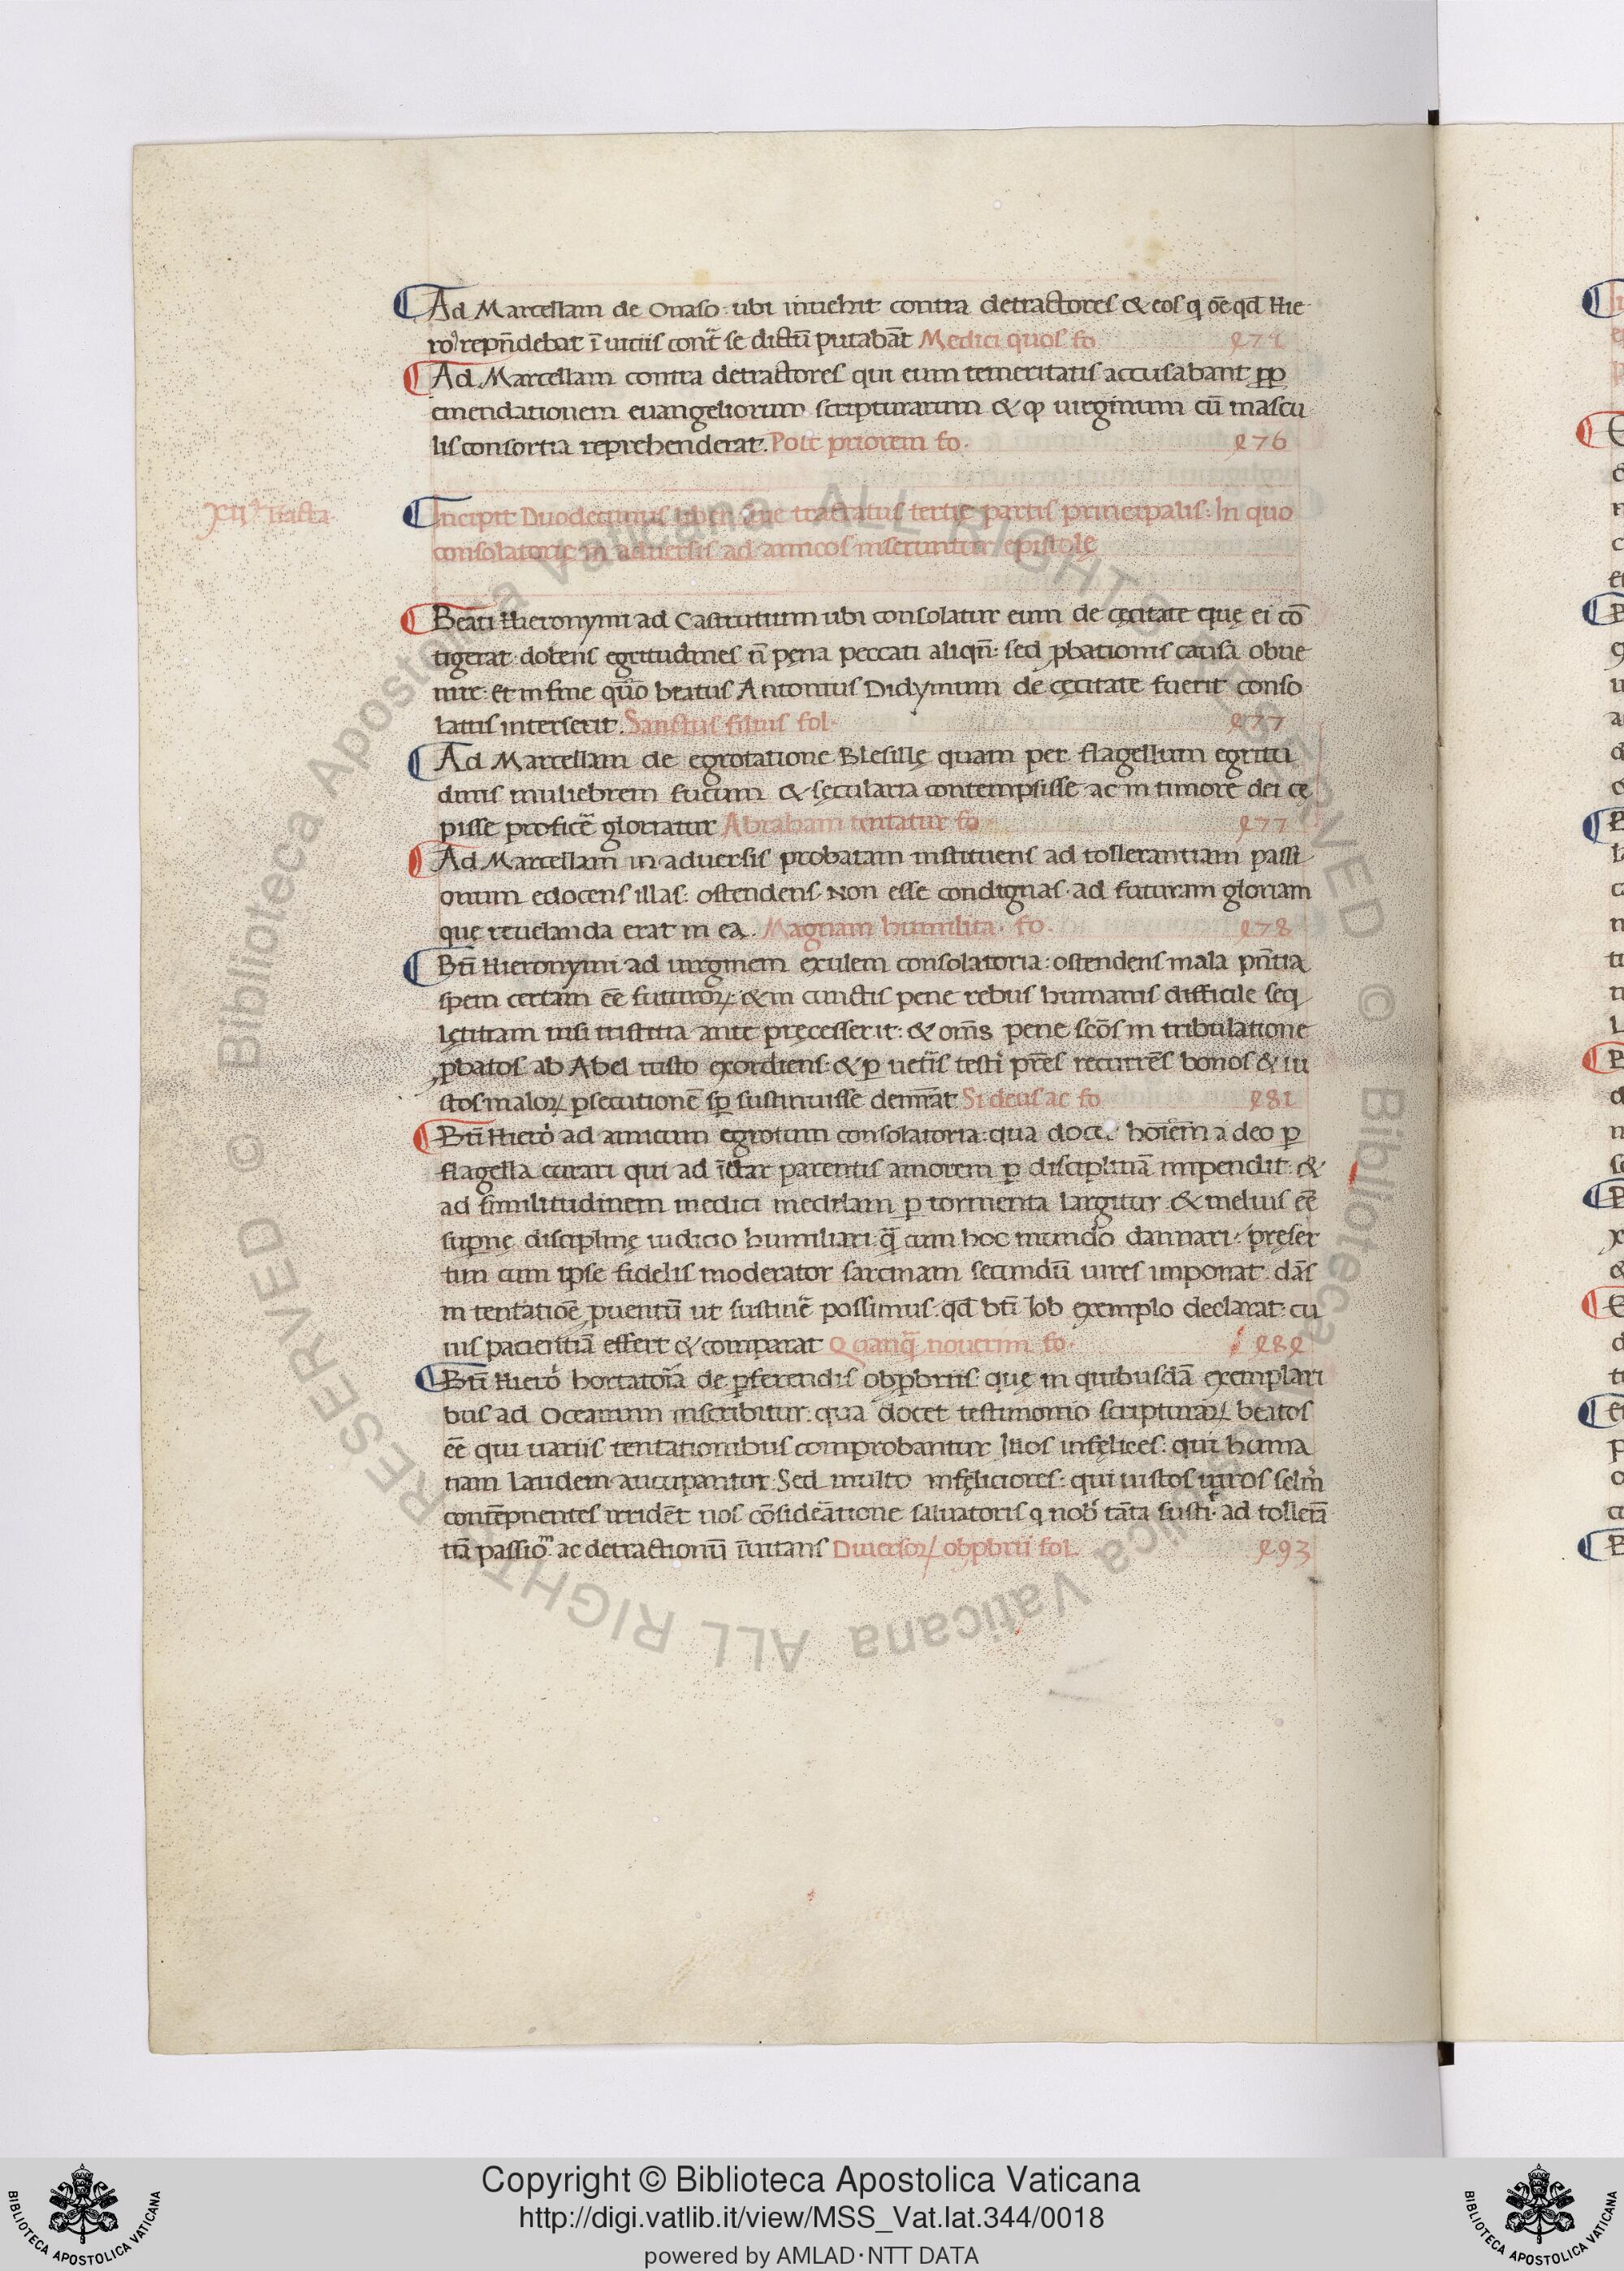 Ad Marcellam de Onaso· ubi inuehit contra detractores & eos q̨ oē qd̄ Hie
roꝰ rep̄ndebat ī uiciis cont̄ se dictū putabāt Medici quos fo 271
Ad Marcellam contra detractores qui eum temeritatis accusabant ꝓp
emendationem euangeliorum scripturarum & ꝙ uirginum cū mascu
lis consortia reprehenderat. Post priorem fo. 276
xijꝰ tracta
Incipit Duodecimus liber siue tractatus tertie partis principalis· In quo
consolatorie in aduersis ad amicos inseruntur epistolę
Beati Hieronymi ad Castrutium ubi consolatur eum de cęcitate quę ei cō
tigerat· docens egritudines n̄ pęna peccati aliqn̄: sed ꝓbationis causa obue
nire: et in fine quō beatus Antonius Didymum de cęcitate fuerit conso
latus interserit. Sanctus filius fol· 277
Ad Marcellam de egrotatione Blesillę quam per flagellum egritu
dinis muliebrem fucum & sęcularia contempsisse ac in timore dei cę
pisse proficē gloriatur Abraham tentatur fo 277
Ad Marcellam in aduersis probatam instituens ad tollerantiam passi
onum edocens illas: ostendens· Non esse condignas· ad futuram gloriam
quę reuelanda erat in ea. Magnam humilita· fo. 278
Bti̅ Hieronymi ad uirginem exulem consolatoria: ostendens mala pn̄tia
spem certam eē futuroꝝ: & in cunctis pene rebus humanis difficile seq̨
lętitiam nisi tristitia ante pręcesserit: & om̄s pene scōs in tribulatione
ꝓbatos ab Abel iusto exordiens: & ꝑ uet̄is testi pr̄es recurrēs bonos & iu
stos maloꝝ ꝑsecutionē sꝑ sustinuisse demr̄at Si deus ac fo 281
Bti̅ Hiero ad amicum egrotum consolatoria: qua docet hoīem a deo ꝑ
flagella curari qui ad īstar parentis amorem ꝑ disciplinā impendit: &
ad similitudinem medici medelam ꝑ tormenta largitur· & melius eē
supne disciplinę iudicio humiliari· q̄ cum hoc mundo damnari· pręser
tim cum ipse fidelis moderator sarcinam secundū uires imponat· dās
in tentatiōe ꝓuentū ut sustinē possimus: qd̄ bti̅ Iob exemplo declarat: cu
ius pacientiā effert & comparat Quanq̄ nouerim fo· 282
Bti̅ Hiero hortatoria de ꝑferendis obꝓbriis· quę in quibusdā exemplari
bus ad Oceanum inscribitur: qua docet testimonio scripturaꝝ beatos
eē qui uariis tentationibus comprobantur. Illos infęlices: qui huma
nam laudem aucupantur. Sed multo infęliciores: qui iustos uiros
contēpnentes irridēt nos cōsidēatione saluatoris q̨ nob̾ tāta susti· ad tollerā
tiā passioᷠ· ac detractionū īuitans Diuersoꝝ obꝓbrii fol. 293
Copyright © Biblioteca Apostolica Vaticana
http://digi.vatlib.it/view/MSS_Vat.lat.344/0018
powered by AMLAD·NTT DATA
BIBLIOTECA APOSTOLICA VATICANA
BIBLIOTECA APOSTOLICA VATICANA
© Biblioteca Apostolica Vaticana ALL RIGHTS RESERVED © Biblioteca Apostolica Vaticana ALL RIGHTS RESERVED